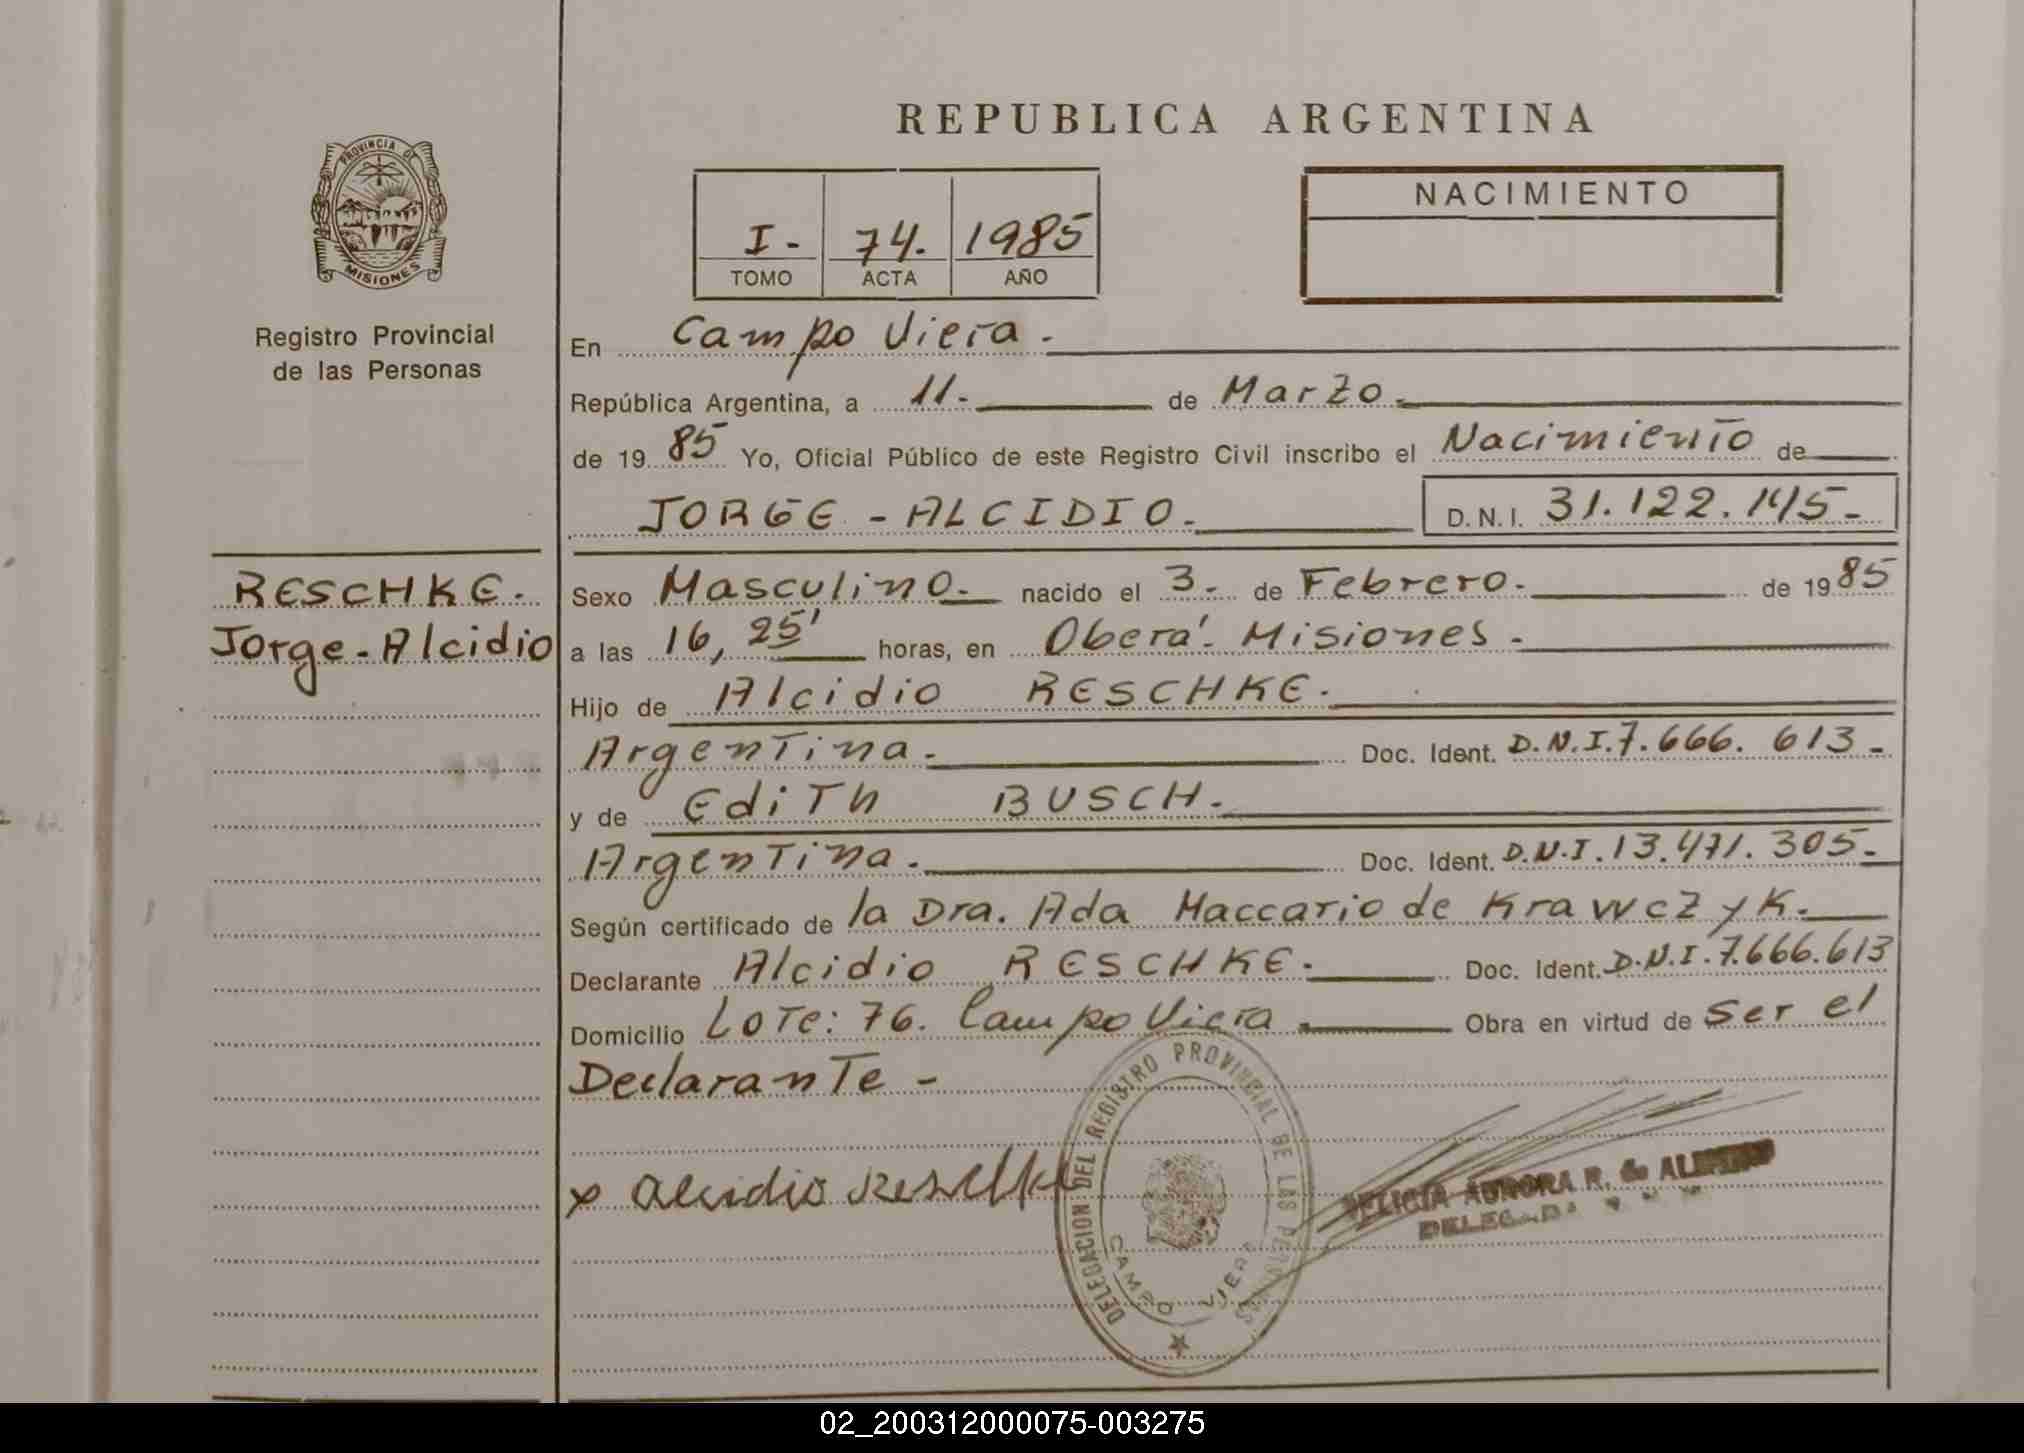 REPUBLICA ARGENTINA
PROVINCIA DE
MISIONES
Registro Provincial
de las Personas
I- 74. 1985
TOMO ACTA AÑO
NACIMIENTO
En Campo Viera.
República Argentina, a 11. de Marzo.
de 1985 Yo, Oficial Público de este Registro Civil inscribo el Nacimiento de
JORGE - ALCIDIO. D.N.I. 31.122.145-
RESCHKE.
Jorge-Alcidio
Sexo Masculino. nacido el 3. de Febrero. de 1985
a las 16,25' horas, en Oberá. Misiones.
Hijo de Alcidio RESCHKE.
Argentina. Doc. Ident. D.N.I.7.666.613-
y de Edith BUSCH.
Argentina. Doc. Ident. D.N.I.13.471.305.
Según certificado de la Dra. Ada Maccario de Krawczyk.
Declarante Alcidio RESCHKE. Doc. Ident. D.N.I.7.666.613
Domicilio Lote: 76. Campo Viera. Obra en virtud de ser el
Declarante-
x Alcidio Reschke
DELEGACION DEL REGISTRO PROVINCIAL DE LAS PERSONAS
CAMPO VIERA
FELICIA AURORA R. de
DELEGADA
02_200312000075-003275